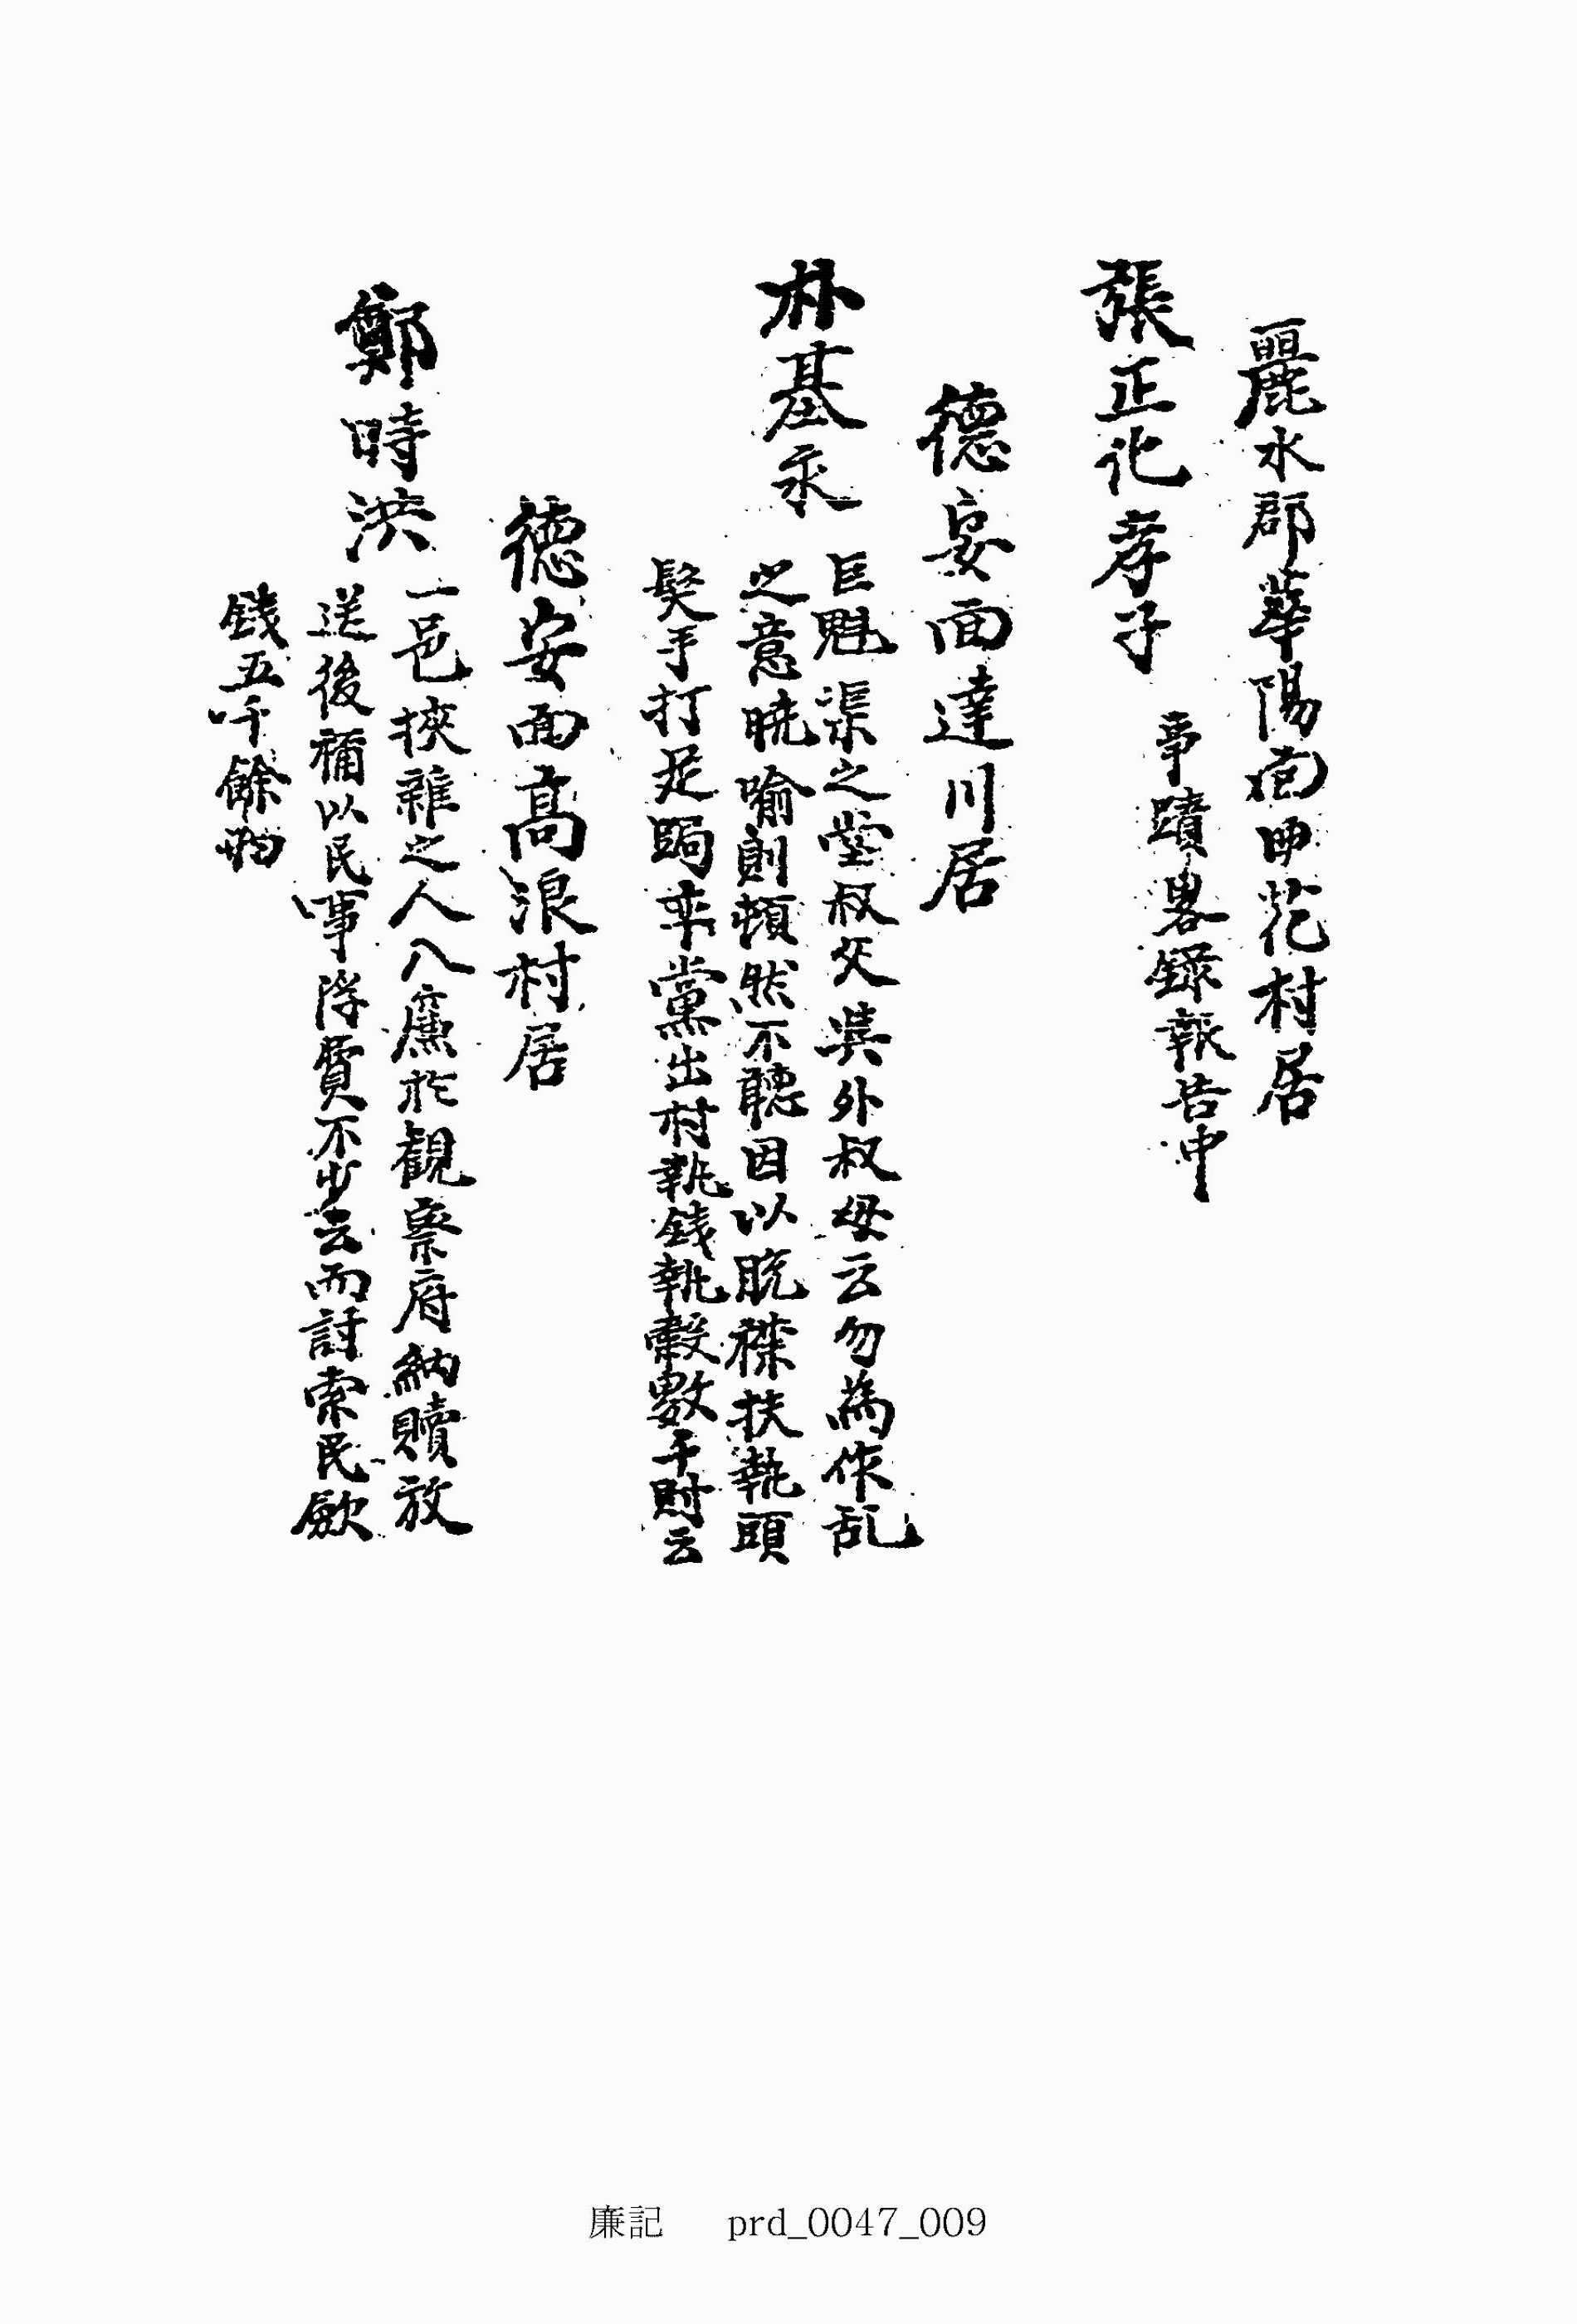 麗水郡華陽面甲花村居
張正化孝子
事蹟畧録報告中
德安面達川居
朴基永
巨魁渠之堂叔父吳外叔母云勿為作乱
之意曉喻則頓然不聽因以脫襟扶執頭
髮手打足踢率黨出村執錢執穀數千財云
德安面高浪村居
鄭時洪
一邑挾雜之人入廉於觀察府納贖放
送後稱以民事浮費不少云而討索民歛
錢五千餘兩
廉記 prd_0047_009